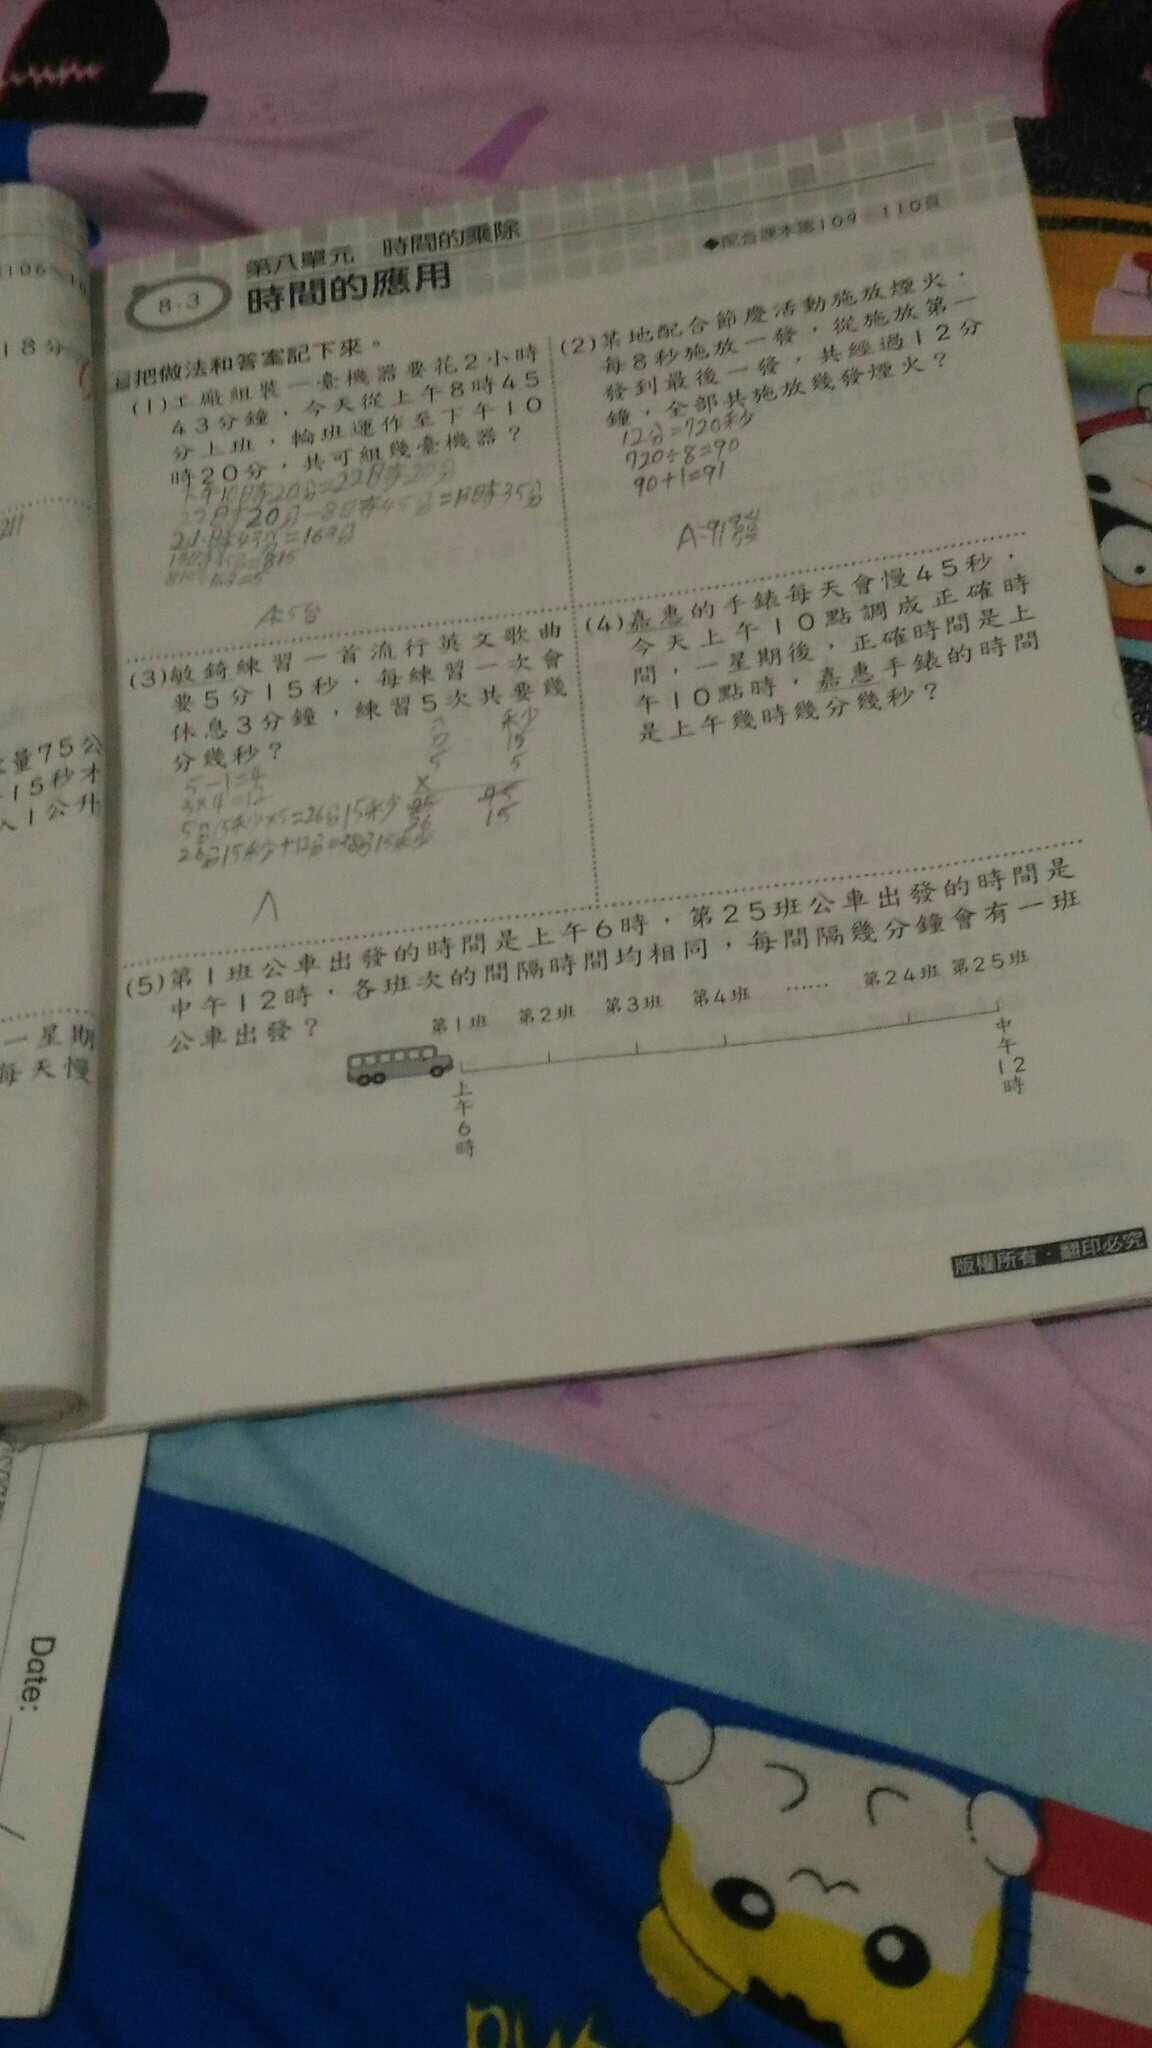 第八單元　時間的乘除
8-3
時間的應用
◆配合課本第109～110頁
把做法和答案記下來。
(1)工廠組裝一臺機器要花2小時
43分鐘，今天從上午8時45
分上班，輪班運作至下午10
時20分，共可組幾臺機器？
下午10時20分=22時20分
22時20分-8時45分=13時35分
2小時43分=163分
A:5台
(2)某地配合節慶活動施放煙火，
每8秒施放一發，從施放第一
發到最後一發，共經過12分
鐘，全部共施放幾發煙火？
12分=720秒
720÷8=90
90+1=91
A=91發
(3)敏錡練習一首流行英文歌曲
要5分15秒，每練習一次會
休息3分鐘，練習5次共要幾
分幾秒？
5-1=4
3×4=12
5分15秒×5=26分15秒
26分15秒+12分=38分15秒
秒
15
5
×
26
15
(4)嘉惠的手錶每天會慢45秒，
今天上午10點調成正確時
間，一星期後，正確時間是上
午10點時，嘉惠手錶的時間
是上午幾時幾分幾秒？
(5)第1班公車出發的時間是上午6時，第25班公車出發的時間是
中午12時，各班次的間隔時間均相同，每間隔幾分鐘會有一班
公車出發？
第1班 第2班 第3班 第4班 …… 第24班 第25班
上午6時
中午12時
版權所有．翻印必究
18分
量75公
15秒才
1公升
一星期
每天慢
Date: